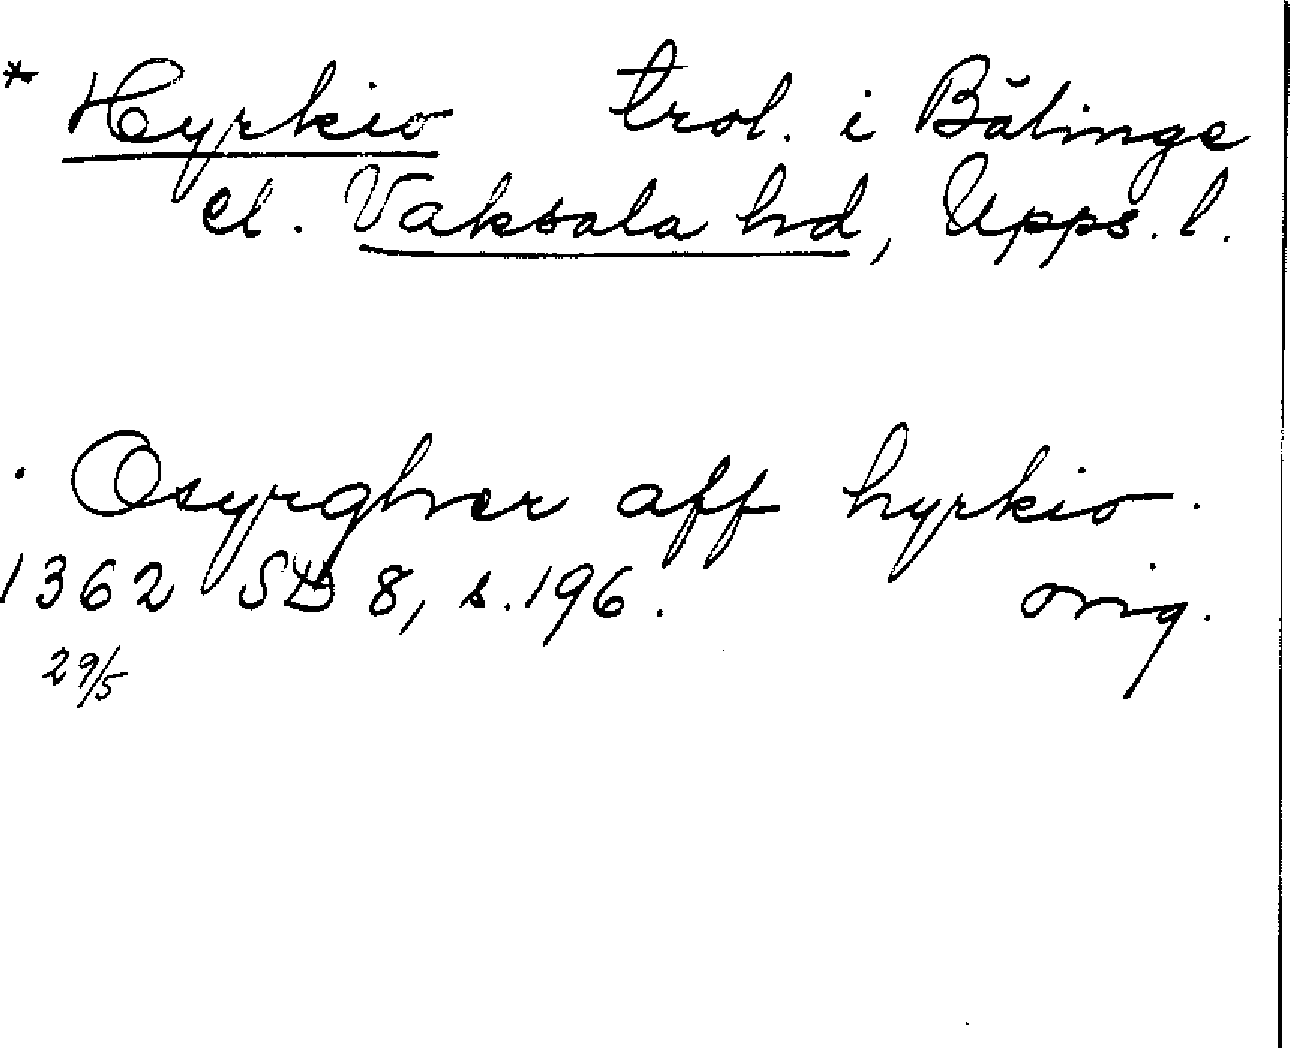 * Hyrkio trol. i Bälinge
el. Vaksala hd, Upps. l.
. Osyrgher aff hyrkio.
1362 SD 8, s. 196. orig.
29/5